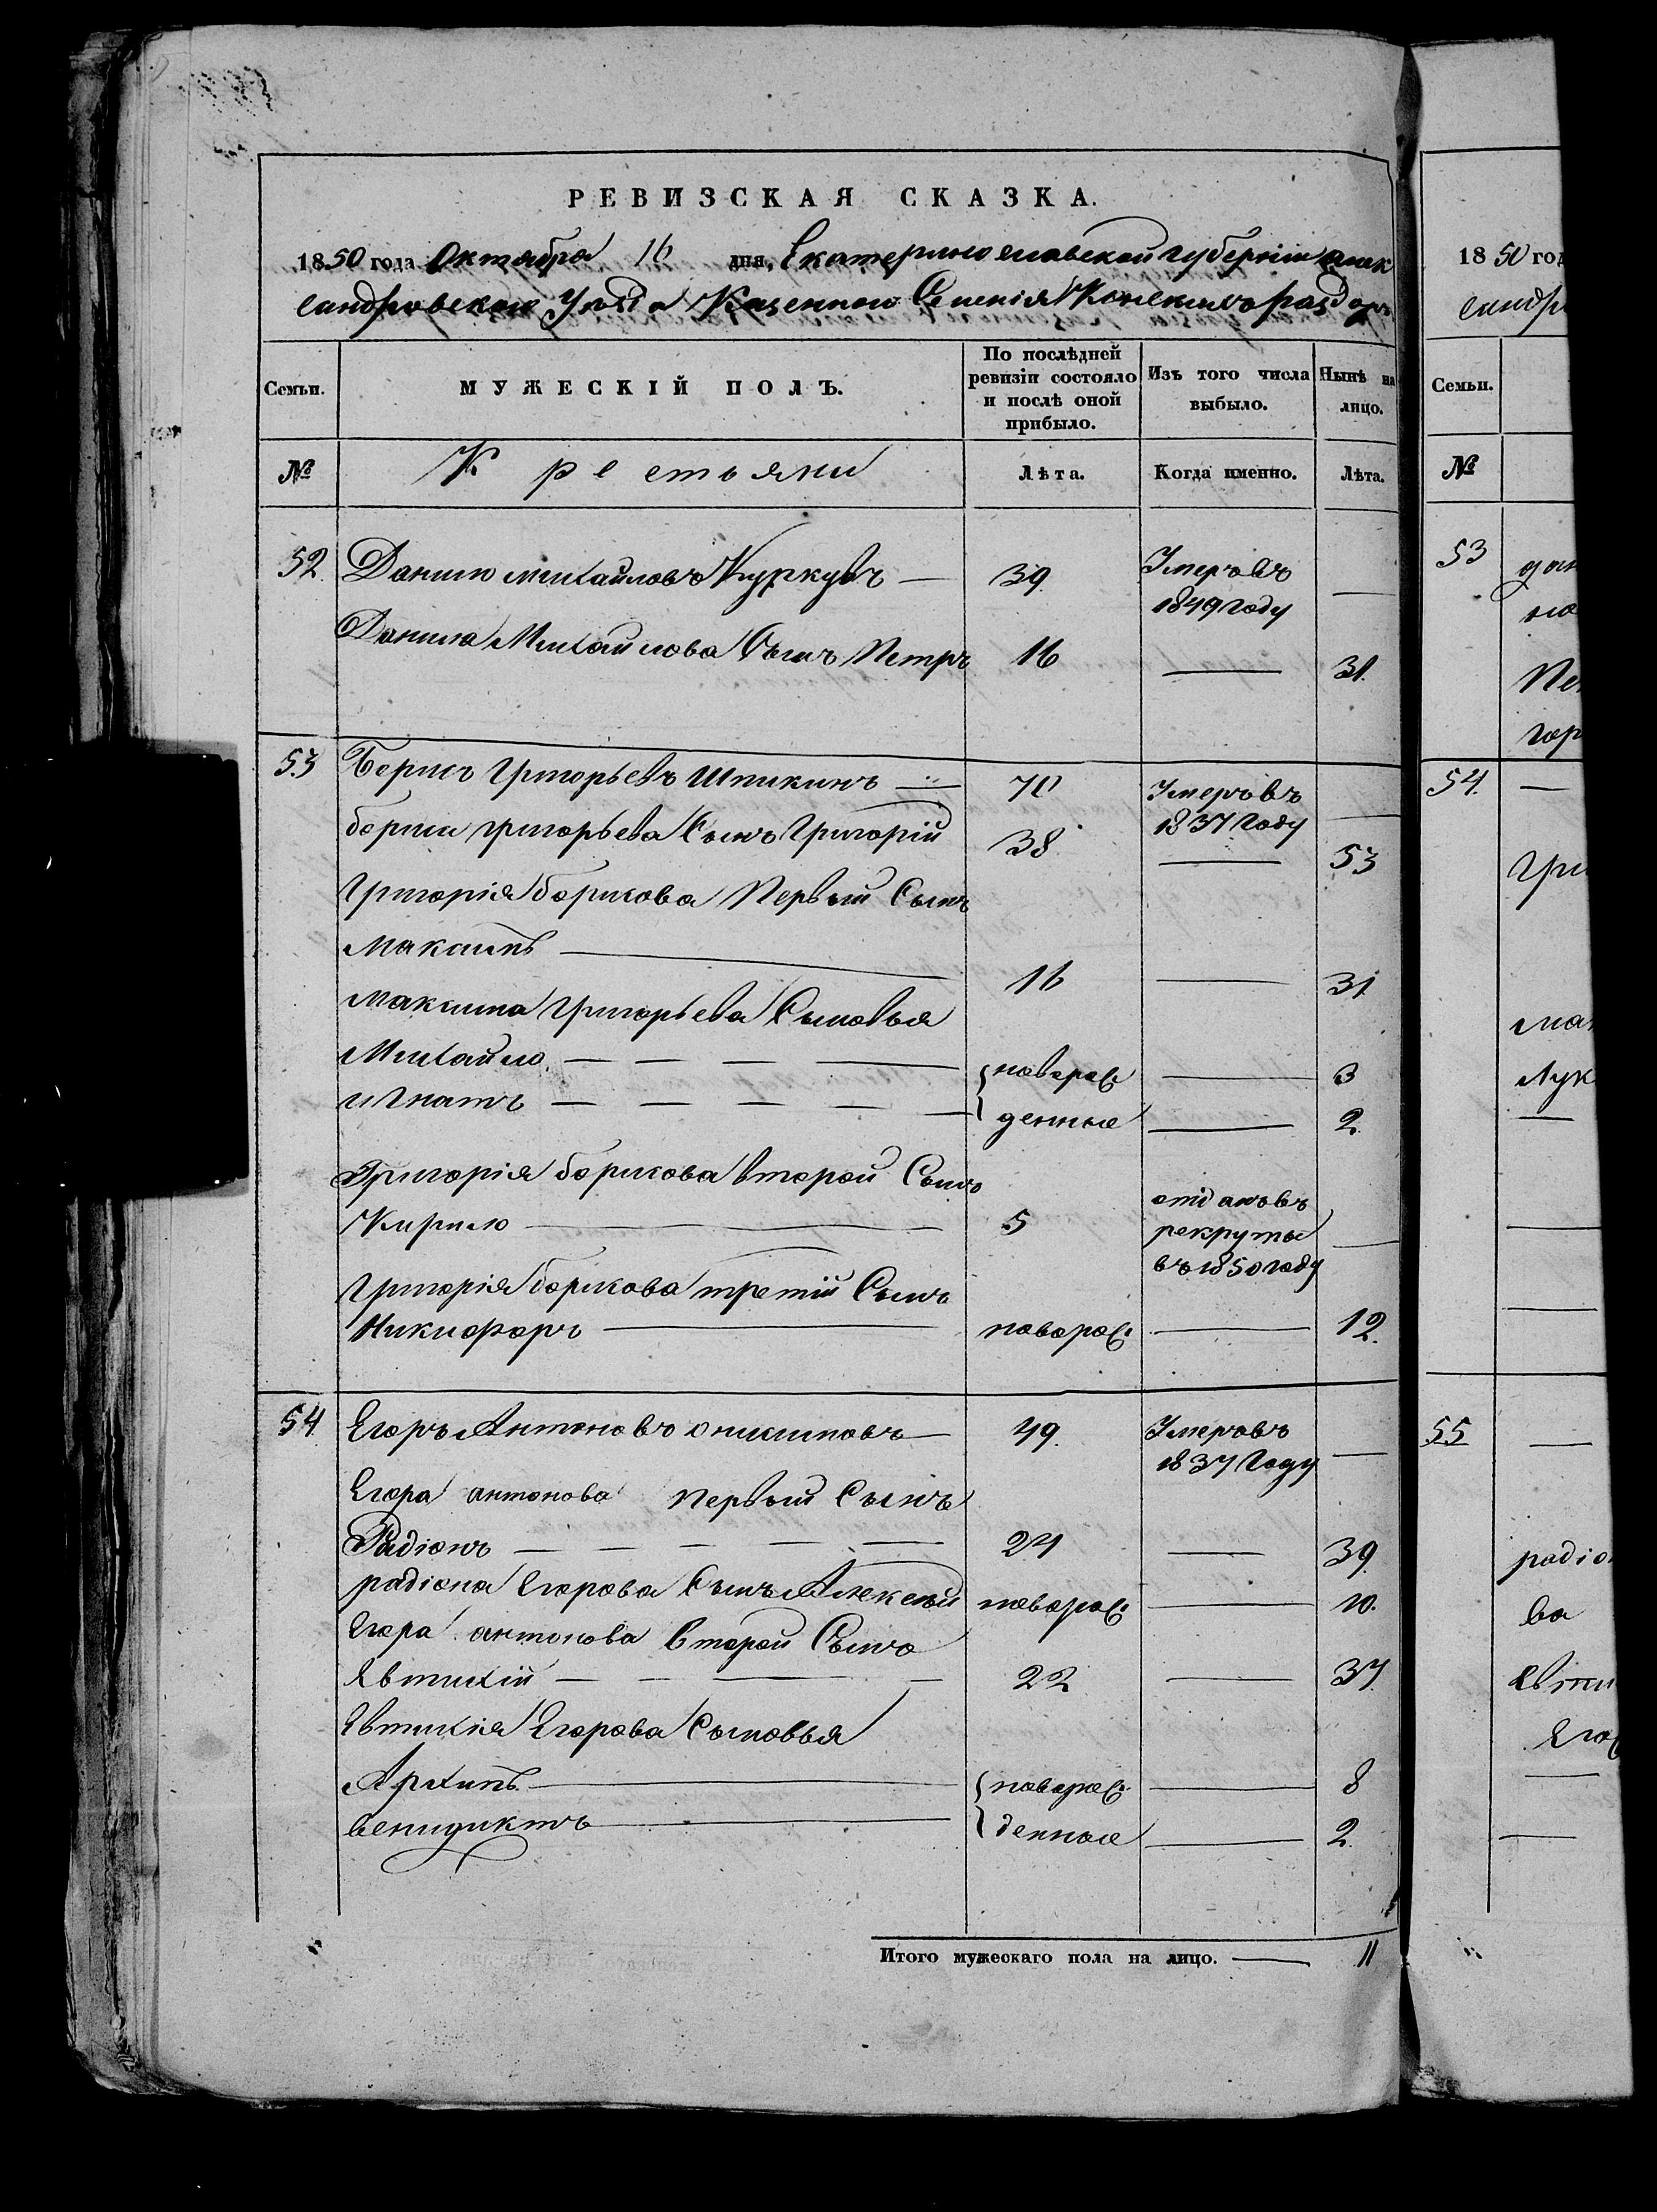 РЕВИЗСКАЯ СКАЗКА.
1850 года Октября 16 дня, Екатеринославской губерніи алек
сандровского Уезда Казенного Селенія Конскихъ раздоръ
Семьи.
МУЖЕСКІЙ ПОЛЪ.
По послѣдней ревизіи состояло и послѣ оной прибыло.
Изъ того числа выбыло.
Нынѣ на лицо.
№
Крестьяни
Лѣта.
Когда именно.
Лѣта.
52. Данило михайловъ — 39. Умеръ въ 1849 году —
Данила Михайлова Сынъ Петръ 16 — 31.
53 Борисъ Григорьевъ Шпикинъ — 70 Умеръ въ 1837 году —
бориса григорьева Сынъ Григорій 38. — 53
Григорія борисова Первый Сынъ
Максимъ — 16 — 31
Максима Григорьева Сыновья
Михайло — — — — новорож — 3
Игнатъ — — — — — денные — 2.
Григорія борисова второй Сынъ
Кирило — 5 отданъ въ рекруты въ 1850 году —
Григорія борисова третій Сынъ
Никифоръ — новорож. — 12.
54. Егоръ Антоновъ онисимовъ — 49. Умеръ въ 1837 Году —
Егора антонова первый Сынъ
Радіонъ — — — — — 24 — 39.
радіона Егорова Сынъ Алексей новорож. — 10.
Егора антонова Второй Сынъ
Явтихій — — — — 22 — 37.
Евтихія Егорова Сыновья
Архипъ — новорож. — 8
венидиктъ — денные — 2.
Итого мужескаго пола на лицо. — 11
1850 год
сандро
Семьи.
№
53
54.
Гри
Лук
55
радіо
ва